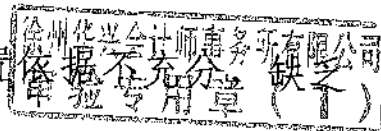 徐州化业会计师事务所有限公司
依据不充分 缺乏
审验专用章(1)